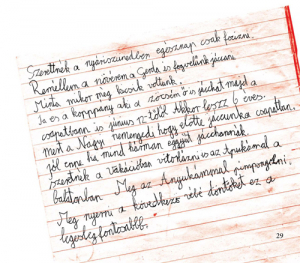 Szeretnék a nyáriszünedben egésznap csak focizni.
Remélem a nővérem a Gerda is fogvelünk játszani
Mint mikor még kicsik voltunk.
Ja és a koppany aki a zocsim ő is játchat majd a
csapatban is június 12 től. Akkor lessz 6 éves.
mert a Nagyi nemengedi hogy előtte játcunka csapatban.
jól enne ha mind hárman eggyüt játchannak.
szeretnék a vakációban vitorlázni is az Apukámal a
balatonban. Meg az Anyukámmal pimpongozni,
Meg nyerni a következő vébé döntöket ez a
legesleg fontosabb.
29